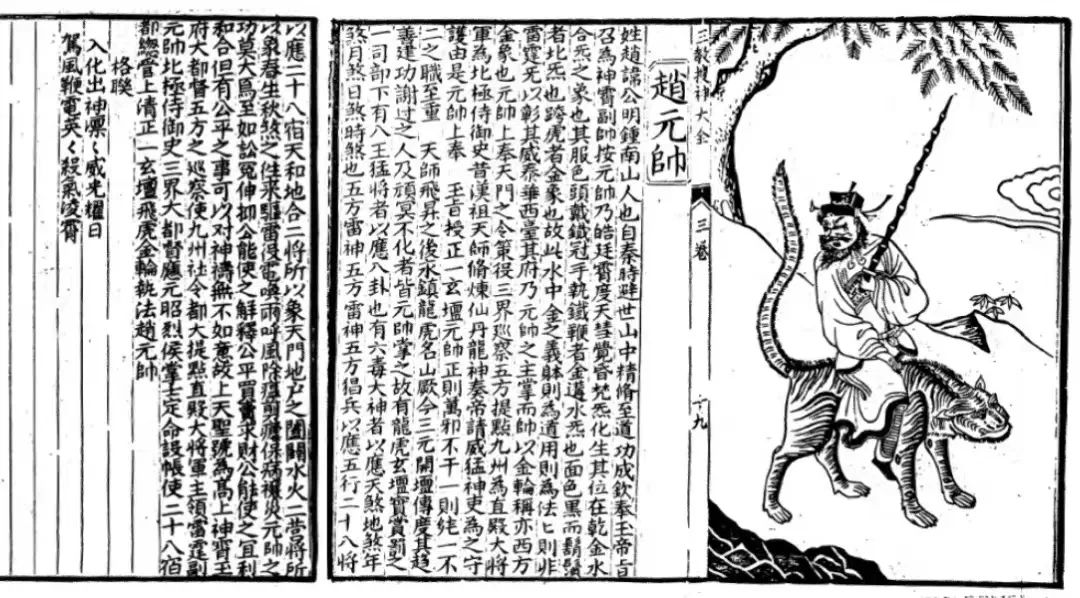 三教搜神大全
三卷
十九
趙元帥
姓趙諱公明鍾南山人也自秦時避世山中精脩至道功成欽奉玉帝旨
召為神霄副帥按元帥乃皓廷霄度天彗覺昏梵炁化生其位在乾金水
合炁之象也其服色頭戴鐵冠手執鐵鞭者金遘水炁也面色黑而鬍鬚
者北炁也跨虎者金象也故此水中金之義躰則為道用則為法匕則非
雷霆旡以彰其威泰華西臺其府乃元帥之主掌而帥以金輪稱亦西方
金象也元帥上奉天門之令策役三界巡察五方提點九州為直殿大將
軍為北極侍御史昔漢祖天師脩煉仙丹龍神奏帝請威猛神吏為之守
護由是元帥上奉 玉旨授正一玄壇元帥正則萬邪不干一則純一不
二之職至重 天師飛昇之後永鎮龍虎名山厥今三元開壇傳度其趨
善建功謝过之人及頑冥不化者皆元帥掌之故有龍虎玄壇實賞罰之
一司部下有八王猛將者以應八卦也有六毒大神者以應天煞地煞年
煞月煞日煞時煞也五方雷神五方雷神五方猖兵以應五行二十八將
以應二十八宿天和地合二將所以象天門地戶之闔闢水火二营將所
以象春生秋煞之徃來驅雷役電喚雨呼風除瘟剪瘧保病禳災元帥之
功莫大焉至如訟冤伸抑公能使之解釋公平買賣求財公能使之宜利
和合但有公平之事可以对神禱無不如意故上天聖號為高上神霄玉
府大都督五方之巡察使九州社令都大提點直殿大將軍主領雷霆副
元帥北極侍御史三界大都督應元昭烈侯掌士定命設帳使二十八宿
都總管上清正一玄壇飛虎金輪執法趙元帥
格聯
入化出神凜〻威光耀日
駕風鞭電英〻殺氣凌霄